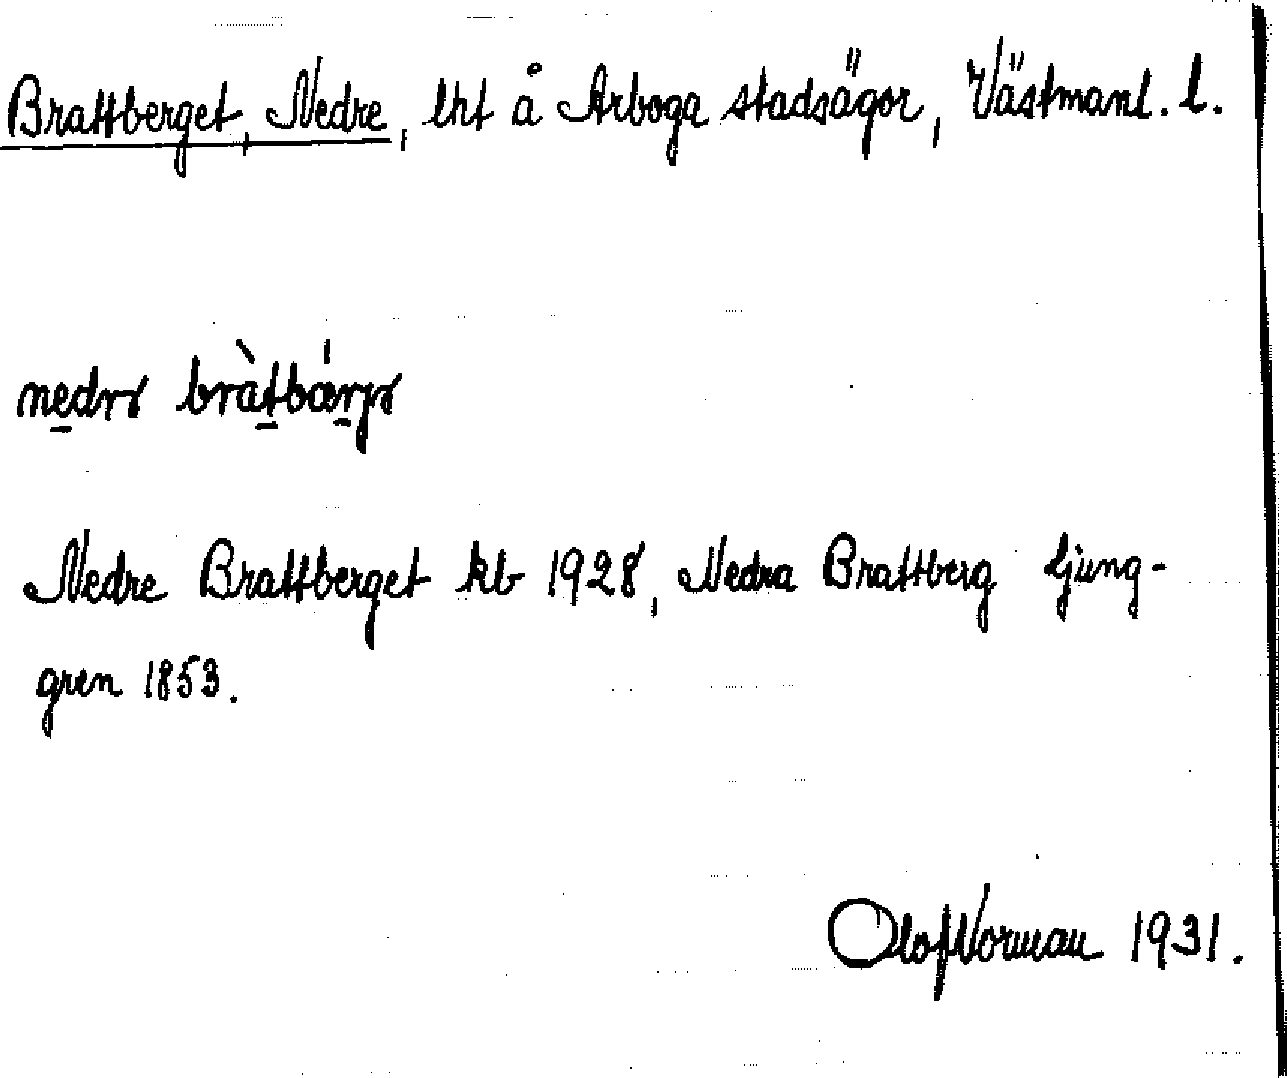 Brattberget, Nedre, lht å Arboga stadsägor, Västmanl. l.
Nedre Brattberget kb 1928, Nedra Brattberg Ljung-
gren 1853.
Olof Norman 1931.